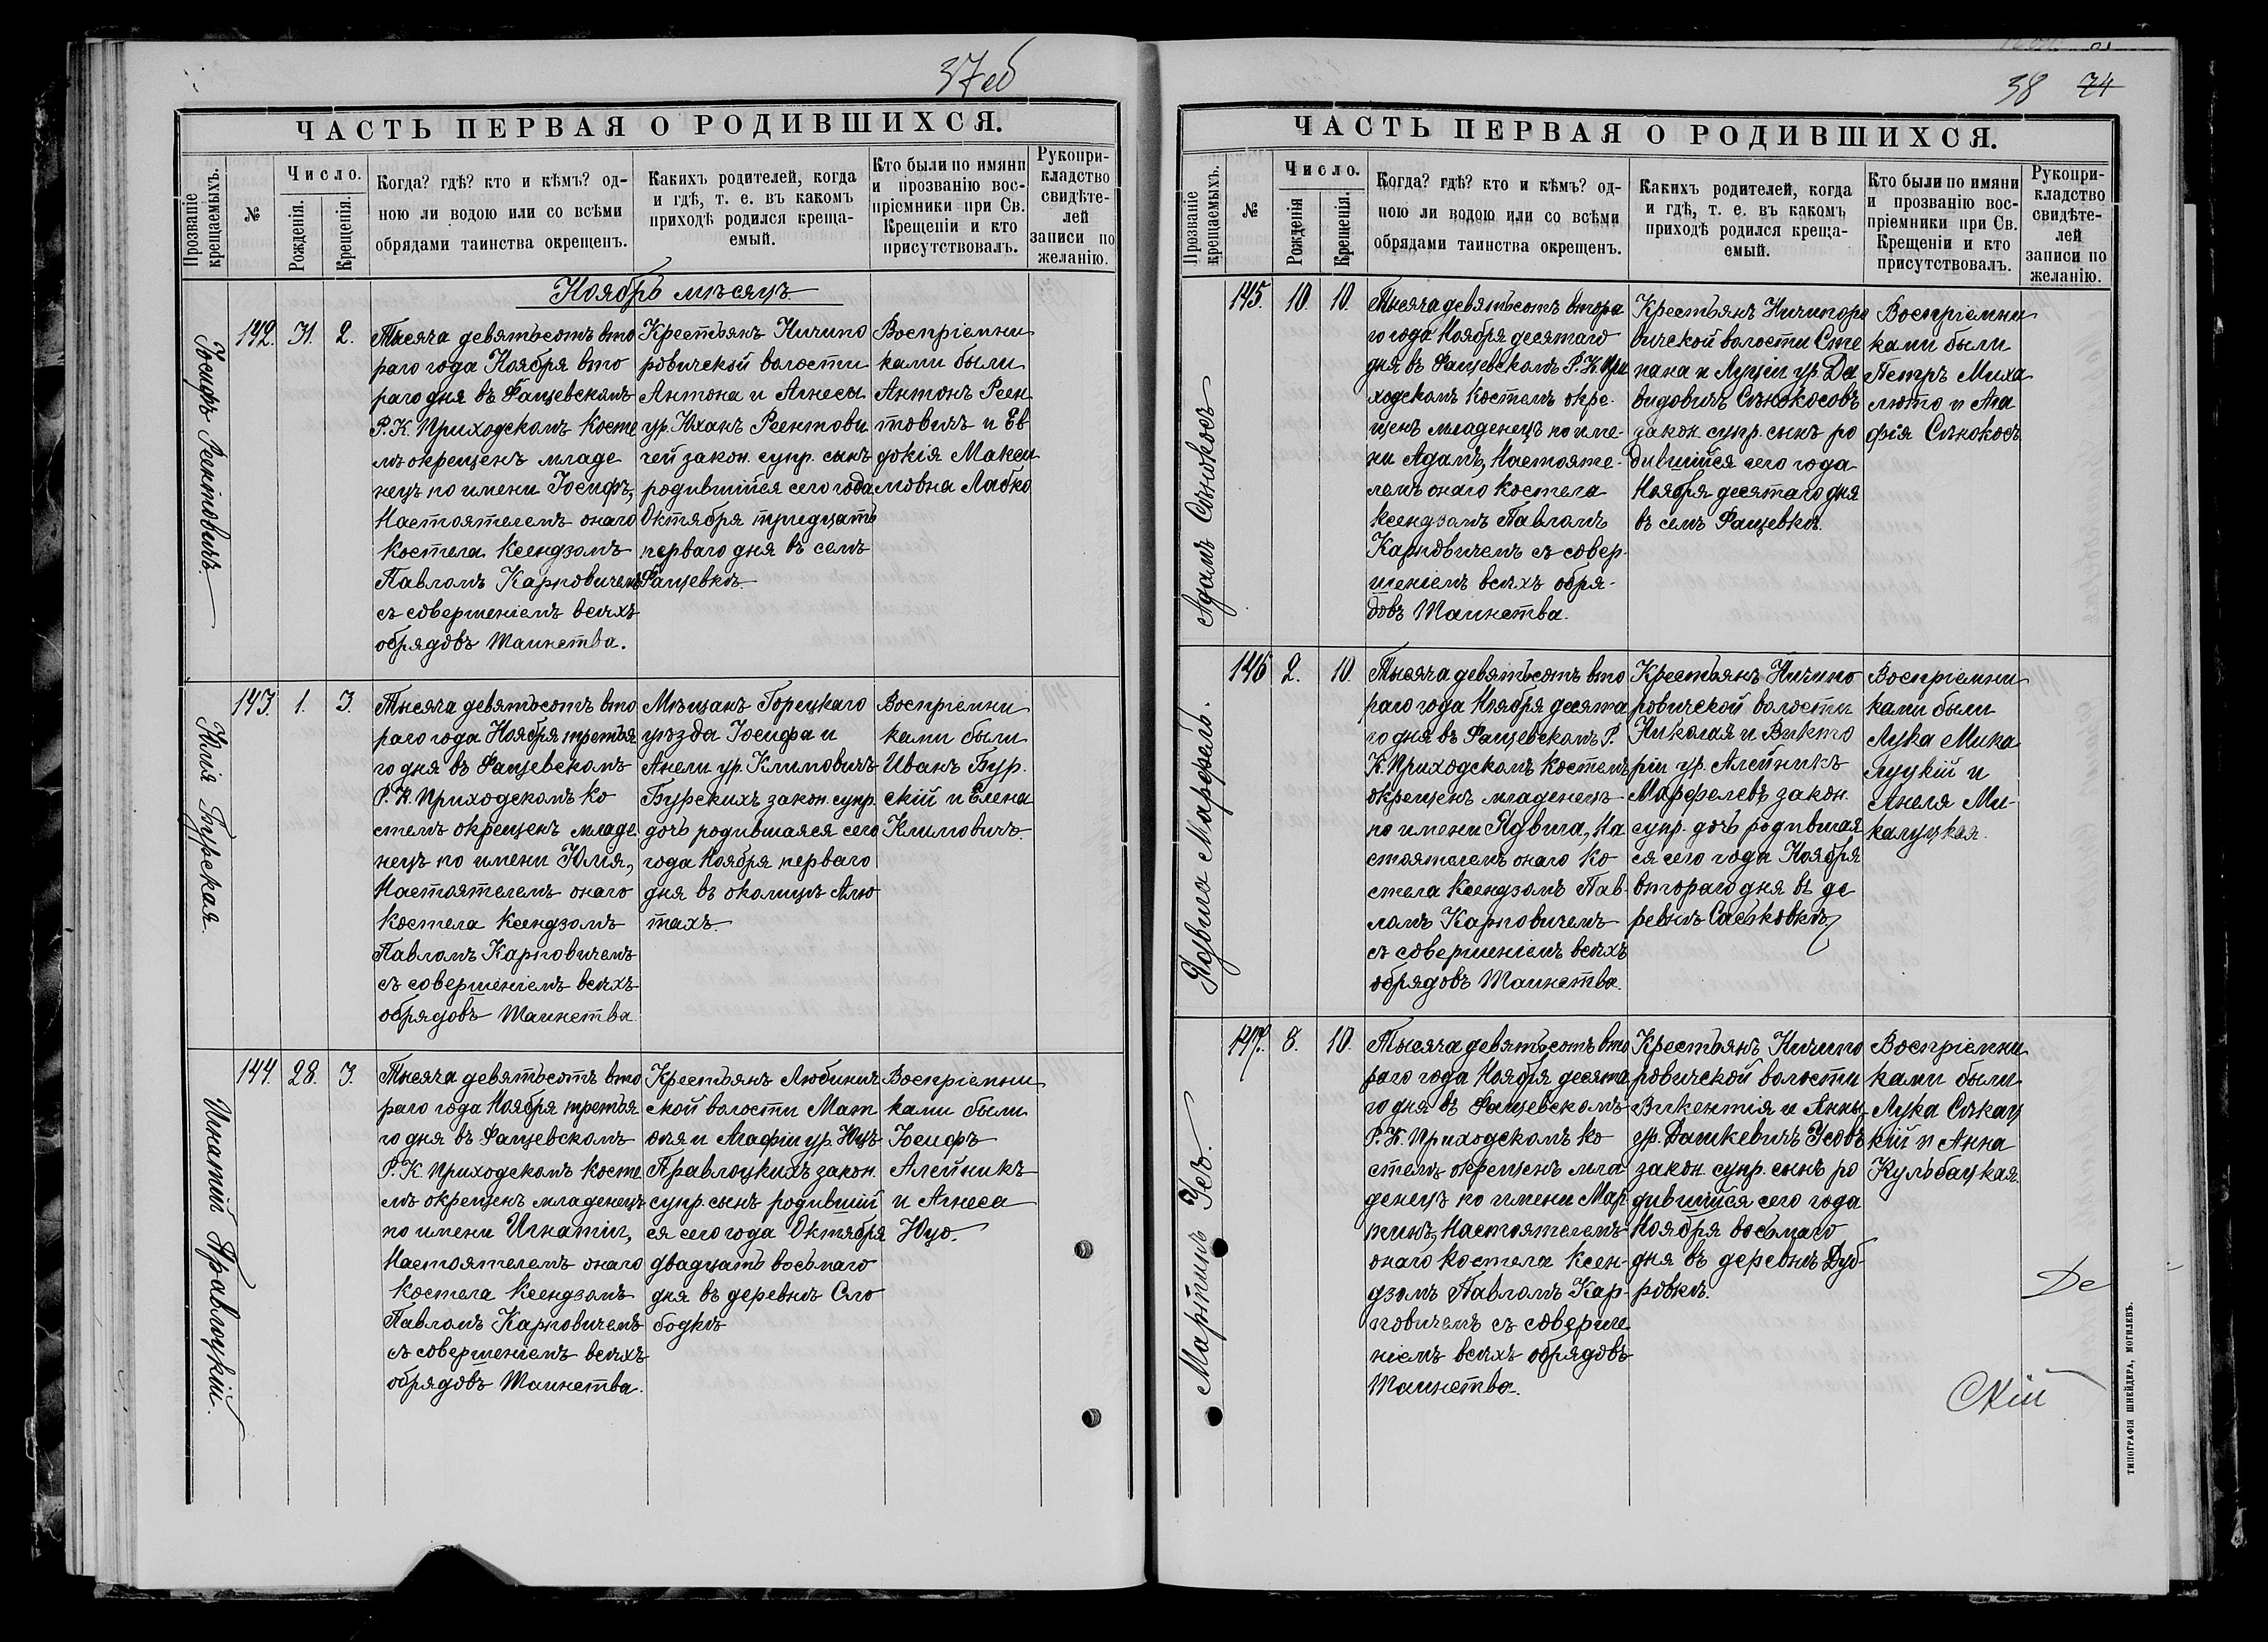 37об
ЧАСТЬ ПЕРВАЯ О РОДИВШИХСЯ.
Прозваніе крещаемыхъ.
№
Число.
Рожденія.
Крещенія.
Когда? гдѣ? кто и кѣмъ? од-
ною ли водою или со всѣми
обрядами таинства окрещенъ.
Какихъ родителей, когда
и гдѣ, т. е. въ какомъ
приходѣ родился креща-
емый.
Кто были по имяни
и прозванію вос-
пріемники при Св.
Крещеніи и кто
присутствовалъ.
Рукопри-
кладство
свидѣте-
лей
записи по
желанію.
Ноябрь мѣсяцъ
Іосифъ Реентовичъ.
142.
31.
2.
Тысяча девятьсотъ вто
раго года Ноября вто
раго дня въ Фащевскомъ
Р. К. Приходскомъ косте
лѣ окрещенъ младе
нецъ по имени Іосифъ,
Настоятелемъ онаго
костела Ксендзомъ
Павломъ Карповичемъ
съ совершеніемъ всѣхъ
обрядовъ Таинства.
Крестьянъ Ничипо
ровичской волости
Антона и Агнесы
ур. Юханъ Реентови
чей закон. супр. сынъ
родившійся сего года
Октября тридцать
перваго дня въ селѣ
Фащевкѣ.
Воспріемни
ками были
Антонъ Реен
товичъ и Ев
докія Макси
мовна Лабко
Юлія Бурская.
143.
1.
3.
Тысяча девятьсотъ вто
раго года Ноября третья
го дня въ Фащевскомъ
Р. К. Приходскомъ ко
стелѣ окрещенъ младе
нецъ по имени Юлія,
Настоятелемъ онаго
костела Ксендзомъ
Павломъ Карповичемъ
съ совершеніемъ всѣхъ
обрядовъ Таинства
Мѣщанъ Горецкаго
уѣзда Іосифа и
Анели ур. Климовичъ
Бурскихъ закон. супр.
дочь родившаяся сего
года Ноября перваго
дня въ околицѣ Алю
тахъ.
Воспріемни
ками были
Иванъ Бур.
скій и Елена
Климовичъ.
Игнатій Правлоцкій.
144.
28.
3.
Тысяча девятьсотъ вто
раго года Ноября третья
го дня въ Фащевскомъ
Р. К. Приходскомъ косте
лѣ окрещенъ младенецъ
по имени Игнатій,
Настоятелемъ онаго
костела Ксендзомъ
Павломъ Карповичемъ
съ совершеніемъ всѣхъ
обрядовъ Таинства.
Крестьянъ Любинич
ской волости Мат
ѳея и Агафіи ур. Юцъ
Правлоцкихъ закон.
супр. сынъ родивший
ся сего года Октября
двадцать восьмаго
дня въ деревнѣ Сло
бодкѣ
Воспріемни
ками были
Іосифъ
Алейникъ
и Агнеса
Юцо.
38 74
ЧАСТЬ ПЕРВАЯ О РОДИВШИХСЯ.
Прозваніе крещаемыхъ.
№
Число.
Рожденія
Крещенія.
Когда? гдѣ? кто и кѣмъ? од-
ною ли водою или со всѣми
обрядами таинства окрещенъ.
Какихъ родителей, когда
и гдѣ, т. е. въ какомъ
приходѣ родился креща-
емый.
Кто были по имяни
и прозванію вос-
пріемники при Св.
Крещеніи и кто
присутствовалъ.
Рукопри-
кладство
свидѣте-
лей
записи по
желанію.
Адамъ Сѣнокосъ
145.
10.
10.
Тысяча девятьсотъ втора
го года Ноября десятаго
дня въ Фащевскомъ Р. К. При
ходскомъ Костелѣ окре.
щенъ младенецъ по име-
ни Адамъ, Настояте-
лемъ онаго костела
Ксендзомъ Павломъ
Карповичемъ съ совер-
шеніемъ всѣхъ обря-
довъ Таинства.
Крестьянъ Ничипоро
вичской волости Сте
пана и Луціи ур. Да
видовичъ Сѣнокосовъ
закон. супр. сынъ ро
дившійся сего года
Ноября десятаго дня
въ селѣ Фащевкѣ.
Воспріемни
ками были
Петръ Миха
люто и Ага
фія Сѣнокосъ
Ядвига Марфель.
146
2.
10.
Тысяча девятьсотъ вто
раго года Ноября десята
го дня въ Фащевскомъ Р.
К. Приходскомъ Костелѣ
окрещенъ младенецъ
по имени Ядвига, На
стоятелемъ онаго ко
стела Ксендзомъ Пав-
ломъ Карповичемъ
съ совершеніемъ всѣхъ
обрядовъ Таинства.
Крестьянъ Ничипо
ровичской волости
Николая и Викто
ріи ур. Алейникъ
Марфелевъ закон.
супр. дочь родившая
ся сего года Ноября
втораго дня въ де
ревнѣ Састковкѣ
Воспріемни
ками были
Лука Мика
луцкій и
Анеля Ми-
калуцкая.
Мартинъ Усъ.
147.
8.
10.
Тысяча девятьсотъ вто
раго года Ноября десята
го дня въ Фащевскомъ
Р. К. Приходскомъ ко
стелѣ окрещенъ мла
денецъ по имени Мар
тинъ, Настоятелемъ
онаго костела Ксен-
дзомъ Павломъ Кар-
повичемъ съ соверше
ніемъ всѣхъ обрядовъ
Таинства.
Крестьянъ Ничипо
ровичской волости
Викентія и Анны
ур. Дашкевичъ Усовъ
закон. супр. сынъ ро
дившийся сего года
Ноября восьмаго
дня въ деревнѣ Дуб
ровкѣ.
Воспріемни
ками были
Лука Сѣкац
кій и Анна
Кульбацкая.
Де
скій
ТИПОГРАФІЯ ШНЕЙДЕРА, МОГИЛЕВЪ.